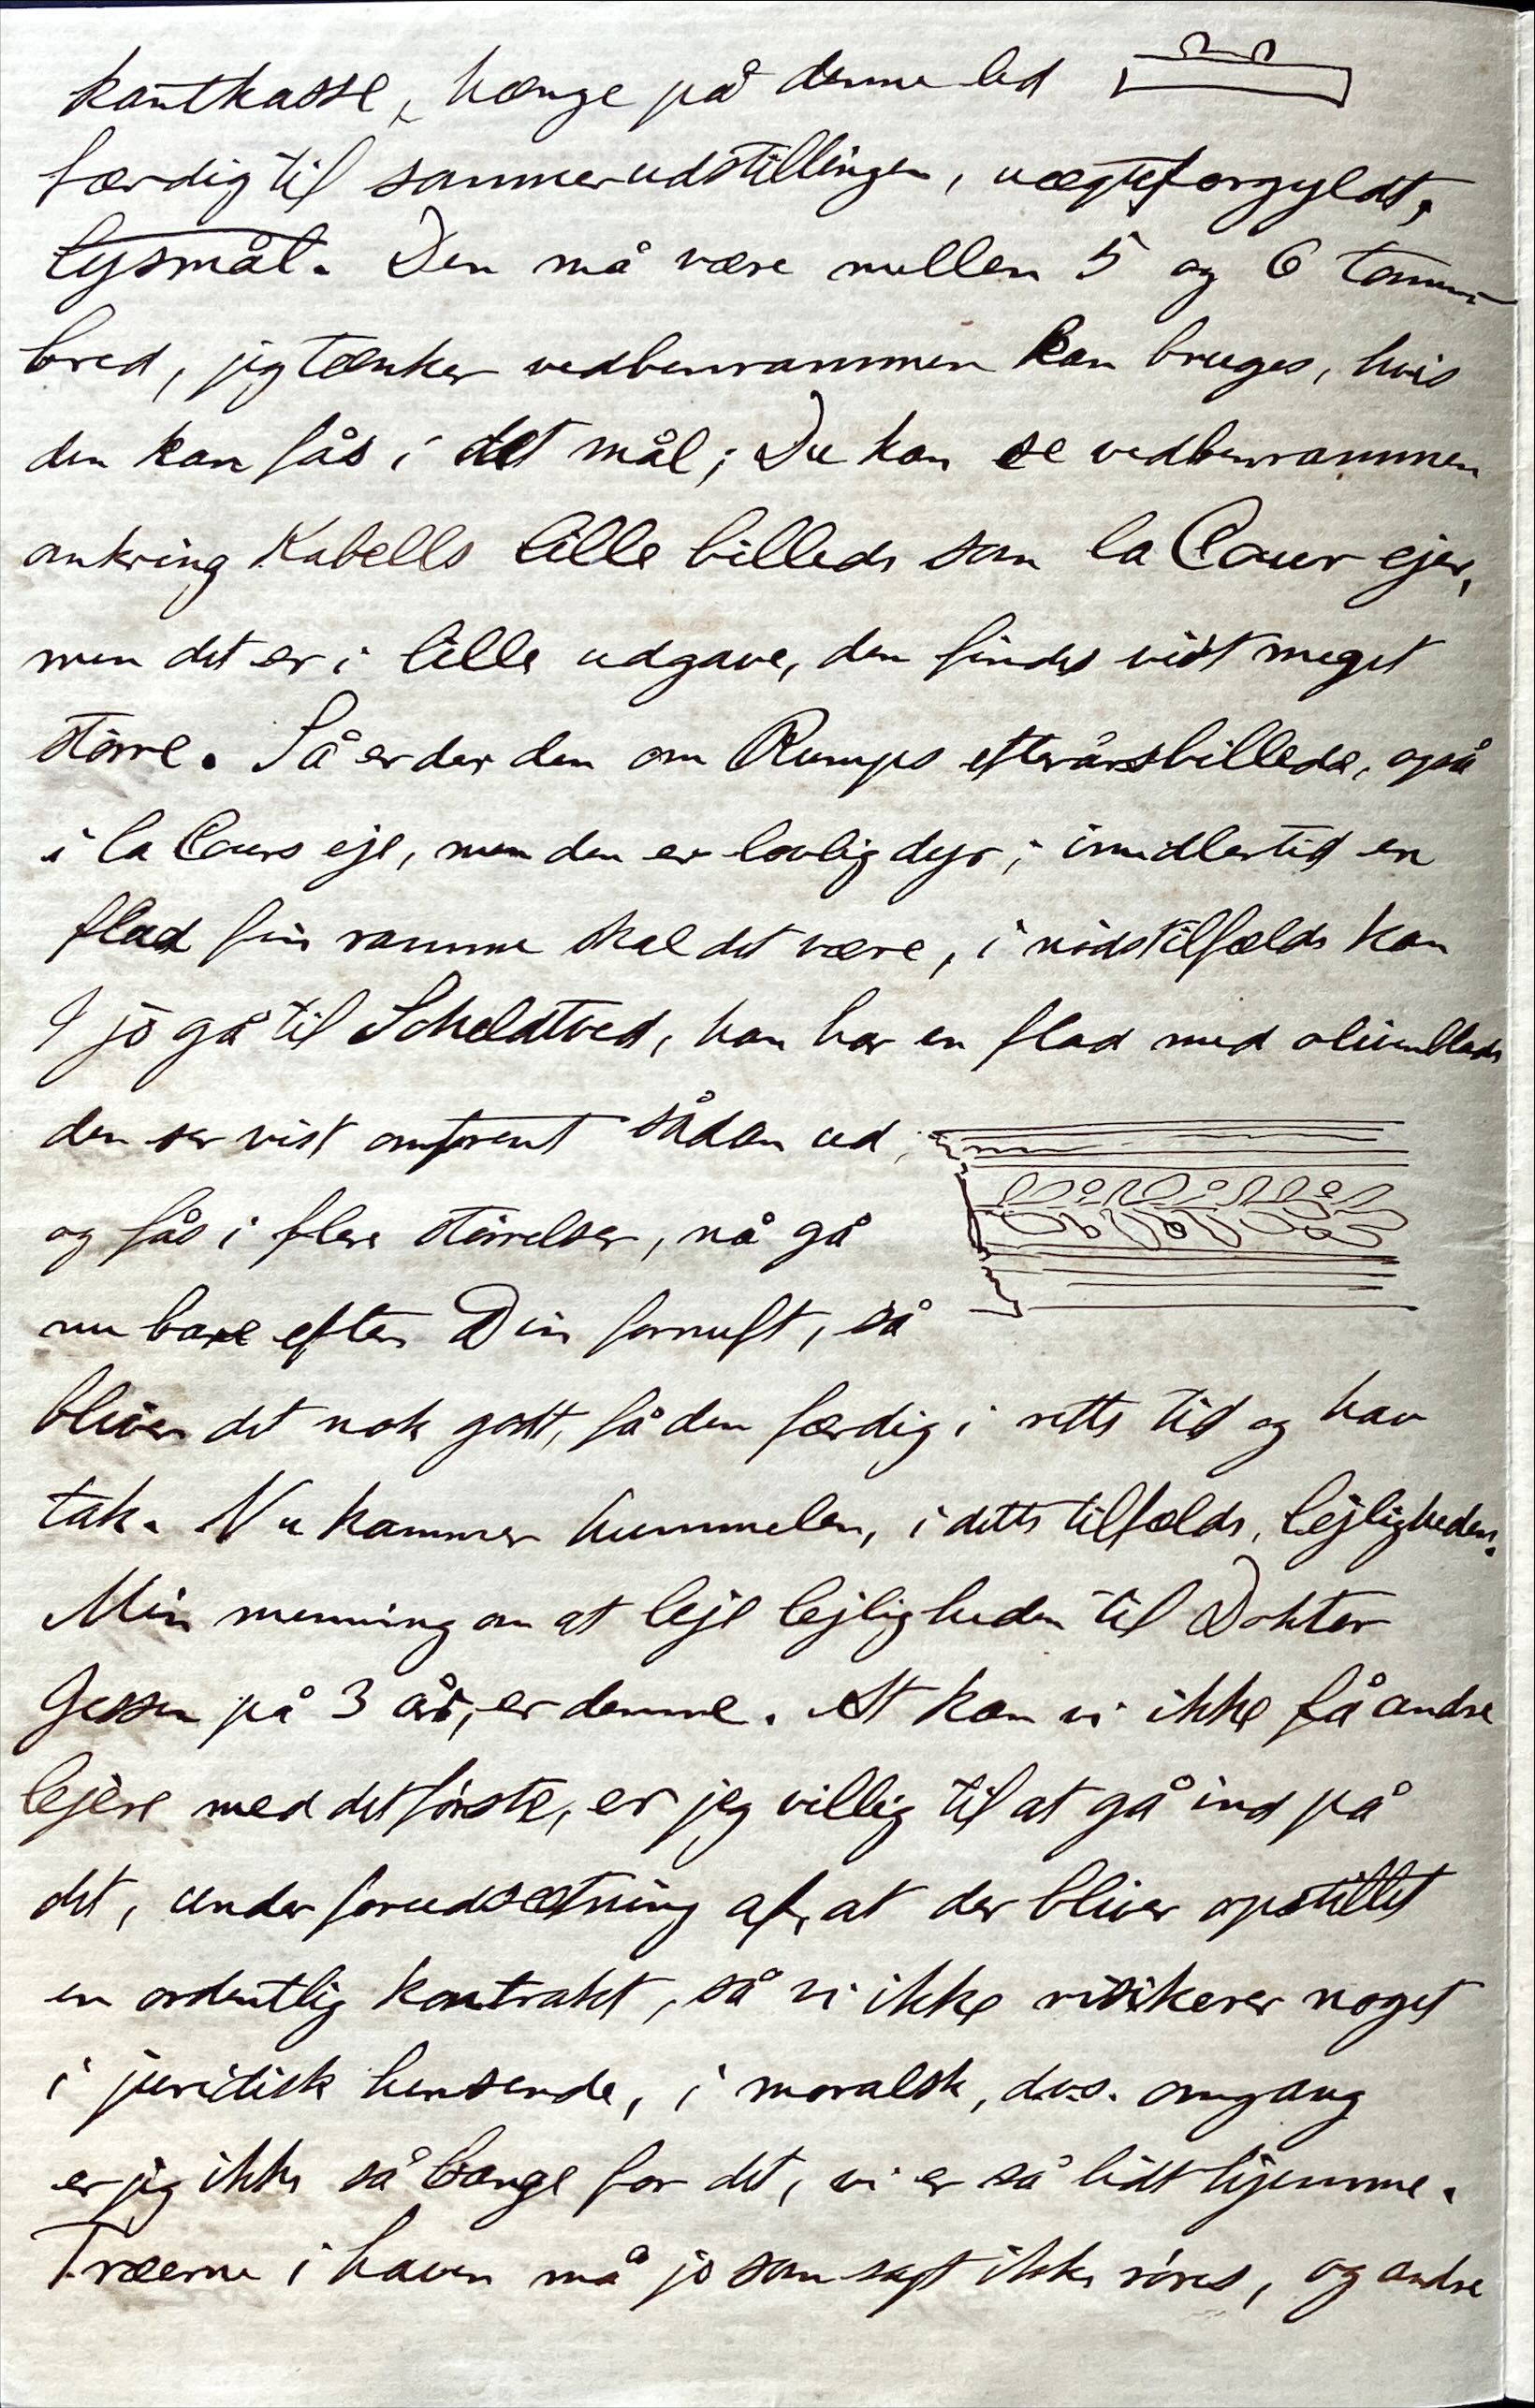 kantkasse, hænge på denne led
færdig til sommerudstillingen, uægteforgyldt,
lysmål. Den må være mellem 5 og 6 tommer
bred, jeg tænker vedbenrammen kan bruges, hvis
den kan fås i det mål; Du kan se vedbenrammen
omkring Kabells lille billede som la Cour ejer,
men det er i lille udgave, den findes vist meget
större. Så er der den om Rumps efterårsbillede, også
i la Cours eje, men den er lovlig dyr; imidlertid en
flad fin ramme skal det være, i nödstilfælde kan
I jo gå til Scheldtved, han har en flad med olivenblade
den ser vist omtrent sådan ud,
og fås i flere störrelser, nå gå
nu bare efter Din fornuft, så
bliver det nok godt, få den færdig i rette tid og hav
tak. Nu kommer hummelen, i dette tilfælde, lejligheden.
Min menning om at leje lejligheden til Doktor
Jessen på 3 år, er denne. At kan vi ikke få andre
lejere med det förste, er jeg villig til at gå ind på
det, under forudsætning af, at der bliver opstillet
en ordentlig kontrakt, så vi ikke risikerer noget
i juridisk hensende, i moralsk, d.v.s. omgang
er jeg ikke så bange for det, vi er så lidt hjemme.
Træerne i haven må jo som sagt ikke röres, og andre